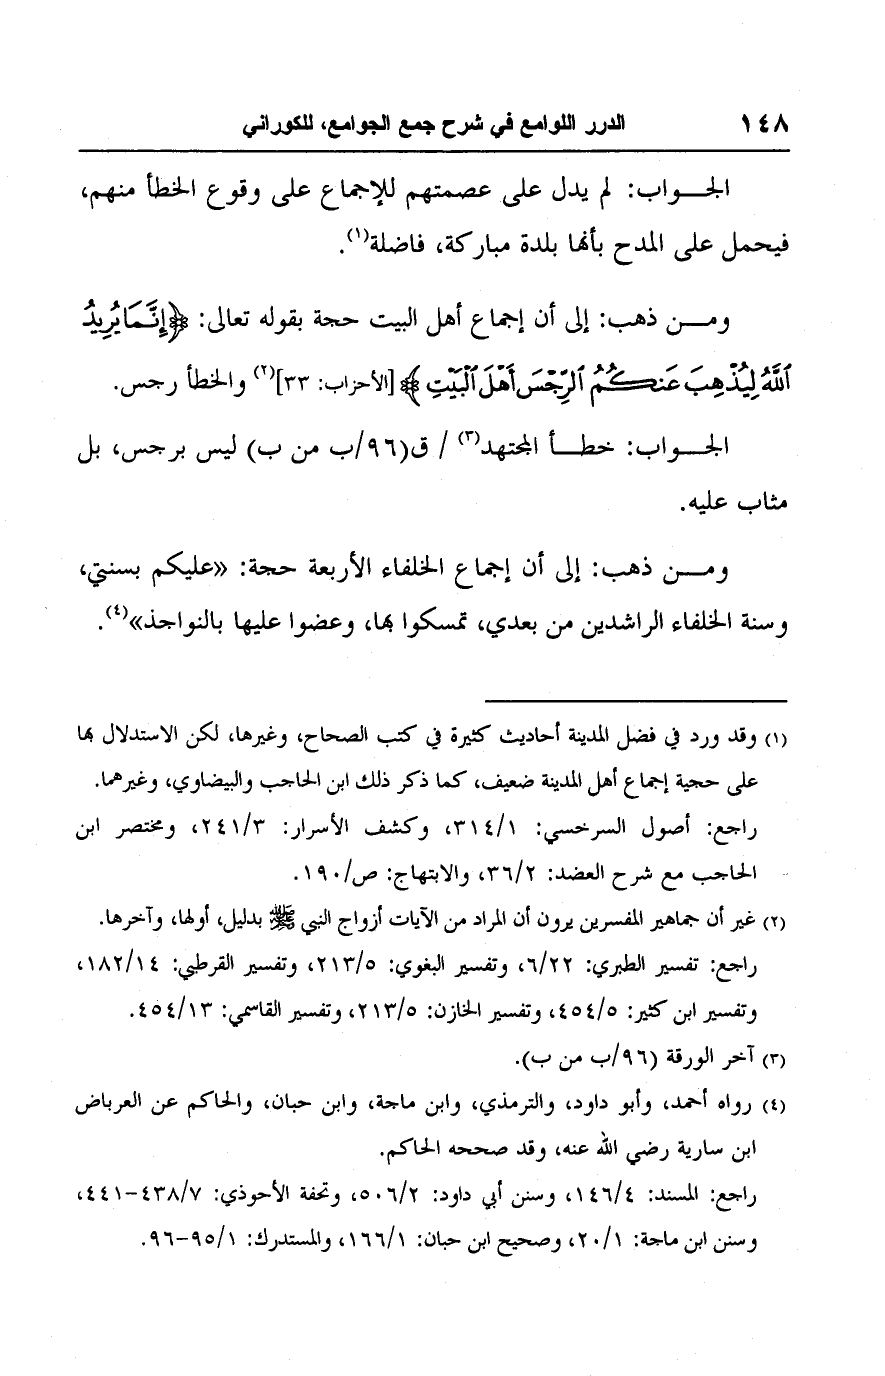 ١٤٨ الدرر اللوامع في شرح جمع الجوامع، للكوراني
الجـــواب: لم يدل على عصمتهم للإجماع على وقوع الخطأ منهم،
فيحمل على المدح بأنها بلدة مباركة، فاضلة(١).
ومـــن ذهب: إلى أن إجماع أهل البيت حجة بقوله تعالى: ﴿إِنَّمَا يُرِيدُ
ٱللَّهُ لِيُذْهِبَ عَنكُمُ ٱلرِّجْسَ أَهْلَ ٱلْبَيْتِ﴾ [الأحزاب: ٣٣](٢) والخطأ رجس.
الجـــواب: خطـــأ المجتهد(٣) / ق(٩٦/ب من ب) ليس برجس، بل
مثاب عليه.
ومـــن ذهب: إلى أن إجماع الخلفاء الأربعة حجة: «عليكم بسنتي،
وسنة الخلفاء الراشدين من بعدي، تمسكوا بها، وعضوا عليها بالنواجذ»(٤).
(١) وقد ورد في فضل المدينة أحاديث كثيرة في كتب الصحاح، وغيرها، لكن الاستدلال بها
على حجية إجماع أهل المدينة ضعيف، كما ذكر ذلك ابن الحاجب والبيضاوي، وغيرهما.
راجع: أصول السرخسي: ٣١٤/١، وكشف الأسرار: ٢٤١/٣، ومختصر ابن
الحاجب مع شرح العضد: ٣٦/٢، والابتهاج: ص/١٩٠.
(٢) غير أن جماهير المفسرين يرون أن المراد من الآيات أزواج النبي ﷺ بدليل، أولها، وآخرها.
راجع: تفسير الطبري: ٦/٢٢، وتفسير البغوي: ٢١٣/٥، وتفسير القرطبي: ١٨٢/١٤،
وتفسير ابن كثير: ٤٥٤/٥، وتفسير الخازن: ٢١٣/٥، وتفسير القاسمي: ٤٥٤/١٣.
(٣) آخر الورقة (٩٦/ب من ب).
(٤) رواه أحمد، وأبو داود، والترمذي، وابن ماجة، وابن حبان، والحاكم عن العرباض
ابن سارية رضي الله عنه، وقد صححه الحاكم.
راجع: المسند: ١٤٦/٤، وسنن أبي داود: ٥٠٦/٢، وتحفة الأحوذي: ٤٣٨/٧-٤٤١،
وسنن ابن ماجة: ٢٠/١، وصحيح ابن حبان: ١٦٦/١، والمستدرك: ٩٥/١-٩٦.